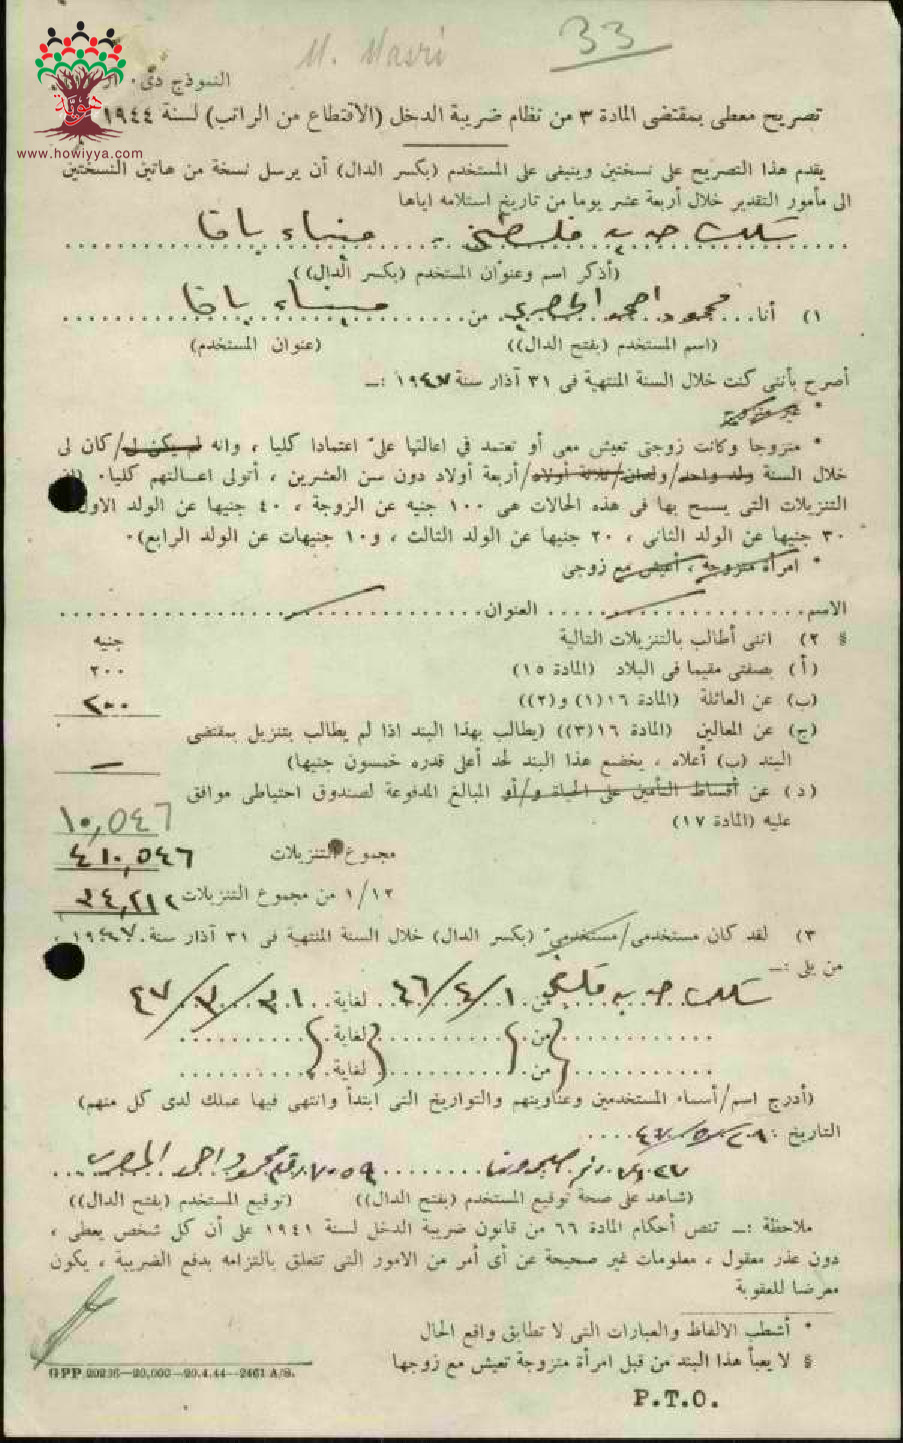 M. Masri
33
هوية
www.howiyya.com
النموذج دى٠
تصريح معطى بمقتضى المادة ٣ من نظام ضريبة الدخل (الاقتطاع من الراتب) لسنة ١٩٤٤
يقدم هذا التصريح على نسختين وينبغى على المستخدم (بكسر الدال) أن يرسل نسخة من هاتين النسختين
الى مأمور التقدير خلال أربعة عشر يوما من تاريخ استلامه اياها
سكك حديد فلسطين - ميناء يافا
(أذكر اسم وعنوان المستخدم (بكسر الدال))
١) أنا محمود احمد المصري من ميناء يافا
(اسم المستخدم (بفتح الدال)) (عنوان المستخدم)
أصرح بأننى كنت خلال السنة المنتهية فى ٣١ آذار سنة ١٩٤٧ :ــ
*
* متزوجا وكانت زوجتى تعيش معى أو تعتمد فى اعالتها علىّ اعتمادا كليا ، وانه لم يكن لى/كان لى
خلال السنة ولد واحد/ولدان/ثلاثة أولاد/أربعة أولاد دون سن العشرين ، أتولى اعالتهم كليا٠ (ان
التنزيلات التى يسمح بها فى هذه الحالات هى ١٠٠ جنيه عن الزوجة ، ٤٠ جنيها عن الولد الاول
٣٠ جنيها عن الولد الثانى ، ٢٠ جنيها عن الولد الثالث ، و١٠ جنيهات عن الولد الرابع)٠
* امرأة متزوجة ، أعيش مع زوجى
الاسم العنوان
§ ٢) اننى أطالب بالتنزيلات التالية جنيه
(أ) بصفتى مقيما فى البلاد (المادة ١٥) ٢٠٠
(ب) عن العائلة (المادة ١٦(١) و(٢)) ٢٠٠
(ج) عن المعالين (المادة ١٦(٣)) (يطالب بهذا البند اذا لم يطالب بتنزيل بمقتضى
البند (ب) أعلاه ، يخضع هذا البند لحد أعلى قدره خمسون جنيها) —
(د) عن أقساط التأمين على الحياة و/أو المبالغ المدفوعة لصندوق احتياطى موافق
عليه (المادة ١٧) ١٠,٥٤٦
مجموع التنزيلات ٤١٠,٥٤٦
١/١٢ من مجموع التنزيلات ٣٤,٢١٢
٣) لقد كان مستخدمى/مستخدمىّ (بكسر الدال) خلال السنة المنتهية فى ٣١ آذار سنة ١٩٤٧
من يلى :ــ
سكك حديد فلسطين من ١/٤/٤٦ لغاية ٣١/٣/٤٧
من لغاية
من لغاية
(أدرج اسم/أسماء المستخدمين وعناوينهم والتواريخ التى ابتدأ وانتهى فيها عملك لدى كل منهم)
التاريخ
محمود احمد المصري رقم ٧٠٥٩
(شاهد على صحة توقيع المستخدم (بفتح الدال)) (توقيع المستخدم (بفتح الدال))
ملاحظة :ــ تنص أحكام المادة ٦٦ من قانون ضريبة الدخل لسنة ١٩٤١ على أن كل شخص يعطى ،
دون عذر معقول ، معلومات غير صحيحة عن أى أمر من الامور التى تتعلق بالتزامه بدفع الضريبة ، يكون
معرضا للعقوبة
* أشطب الالفاظ والعبارات التى لا تطابق واقع الحال
§ لا يعبأ هذا البند من قبل امرأة متزوجة تعيش مع زوجها
GPP 20236—20,000—20.4.44—2461 A/S.
P.T.O.